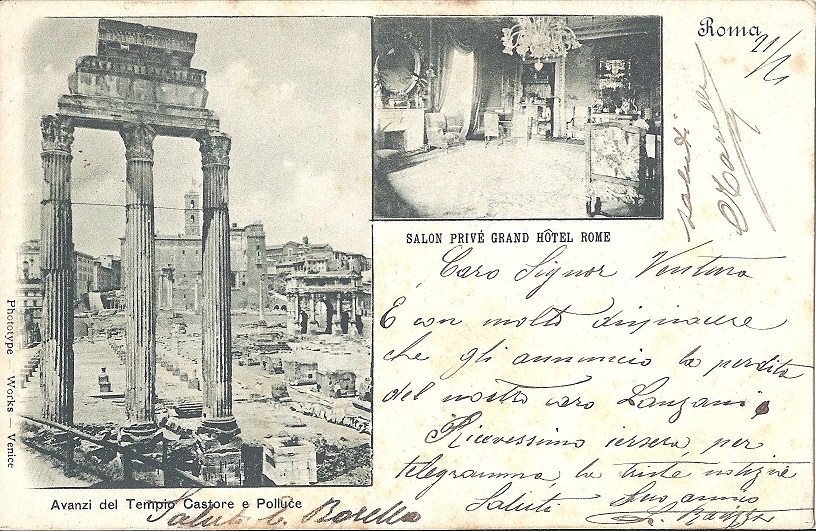 Roma 21/1
saluti
SALON PRIVÉ GRAND HÔTEL ROME
Caro Signor Ventura
È con molto dispiacere
che gli annuncio la perdita
del nostro caro Lanzani,
Ricevessimo iersera, per
telegramma, la triste notizie
Saluti Suo amico
Phototype — Works — Venice
Avanzi del Tempio Castore e Polluce
Saluti C. Borella